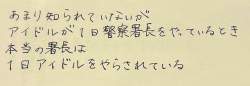 あまり知られていないが
アイドルが1日警察署長をやっているとき
本当の署長は
1日アイドルをやらされている